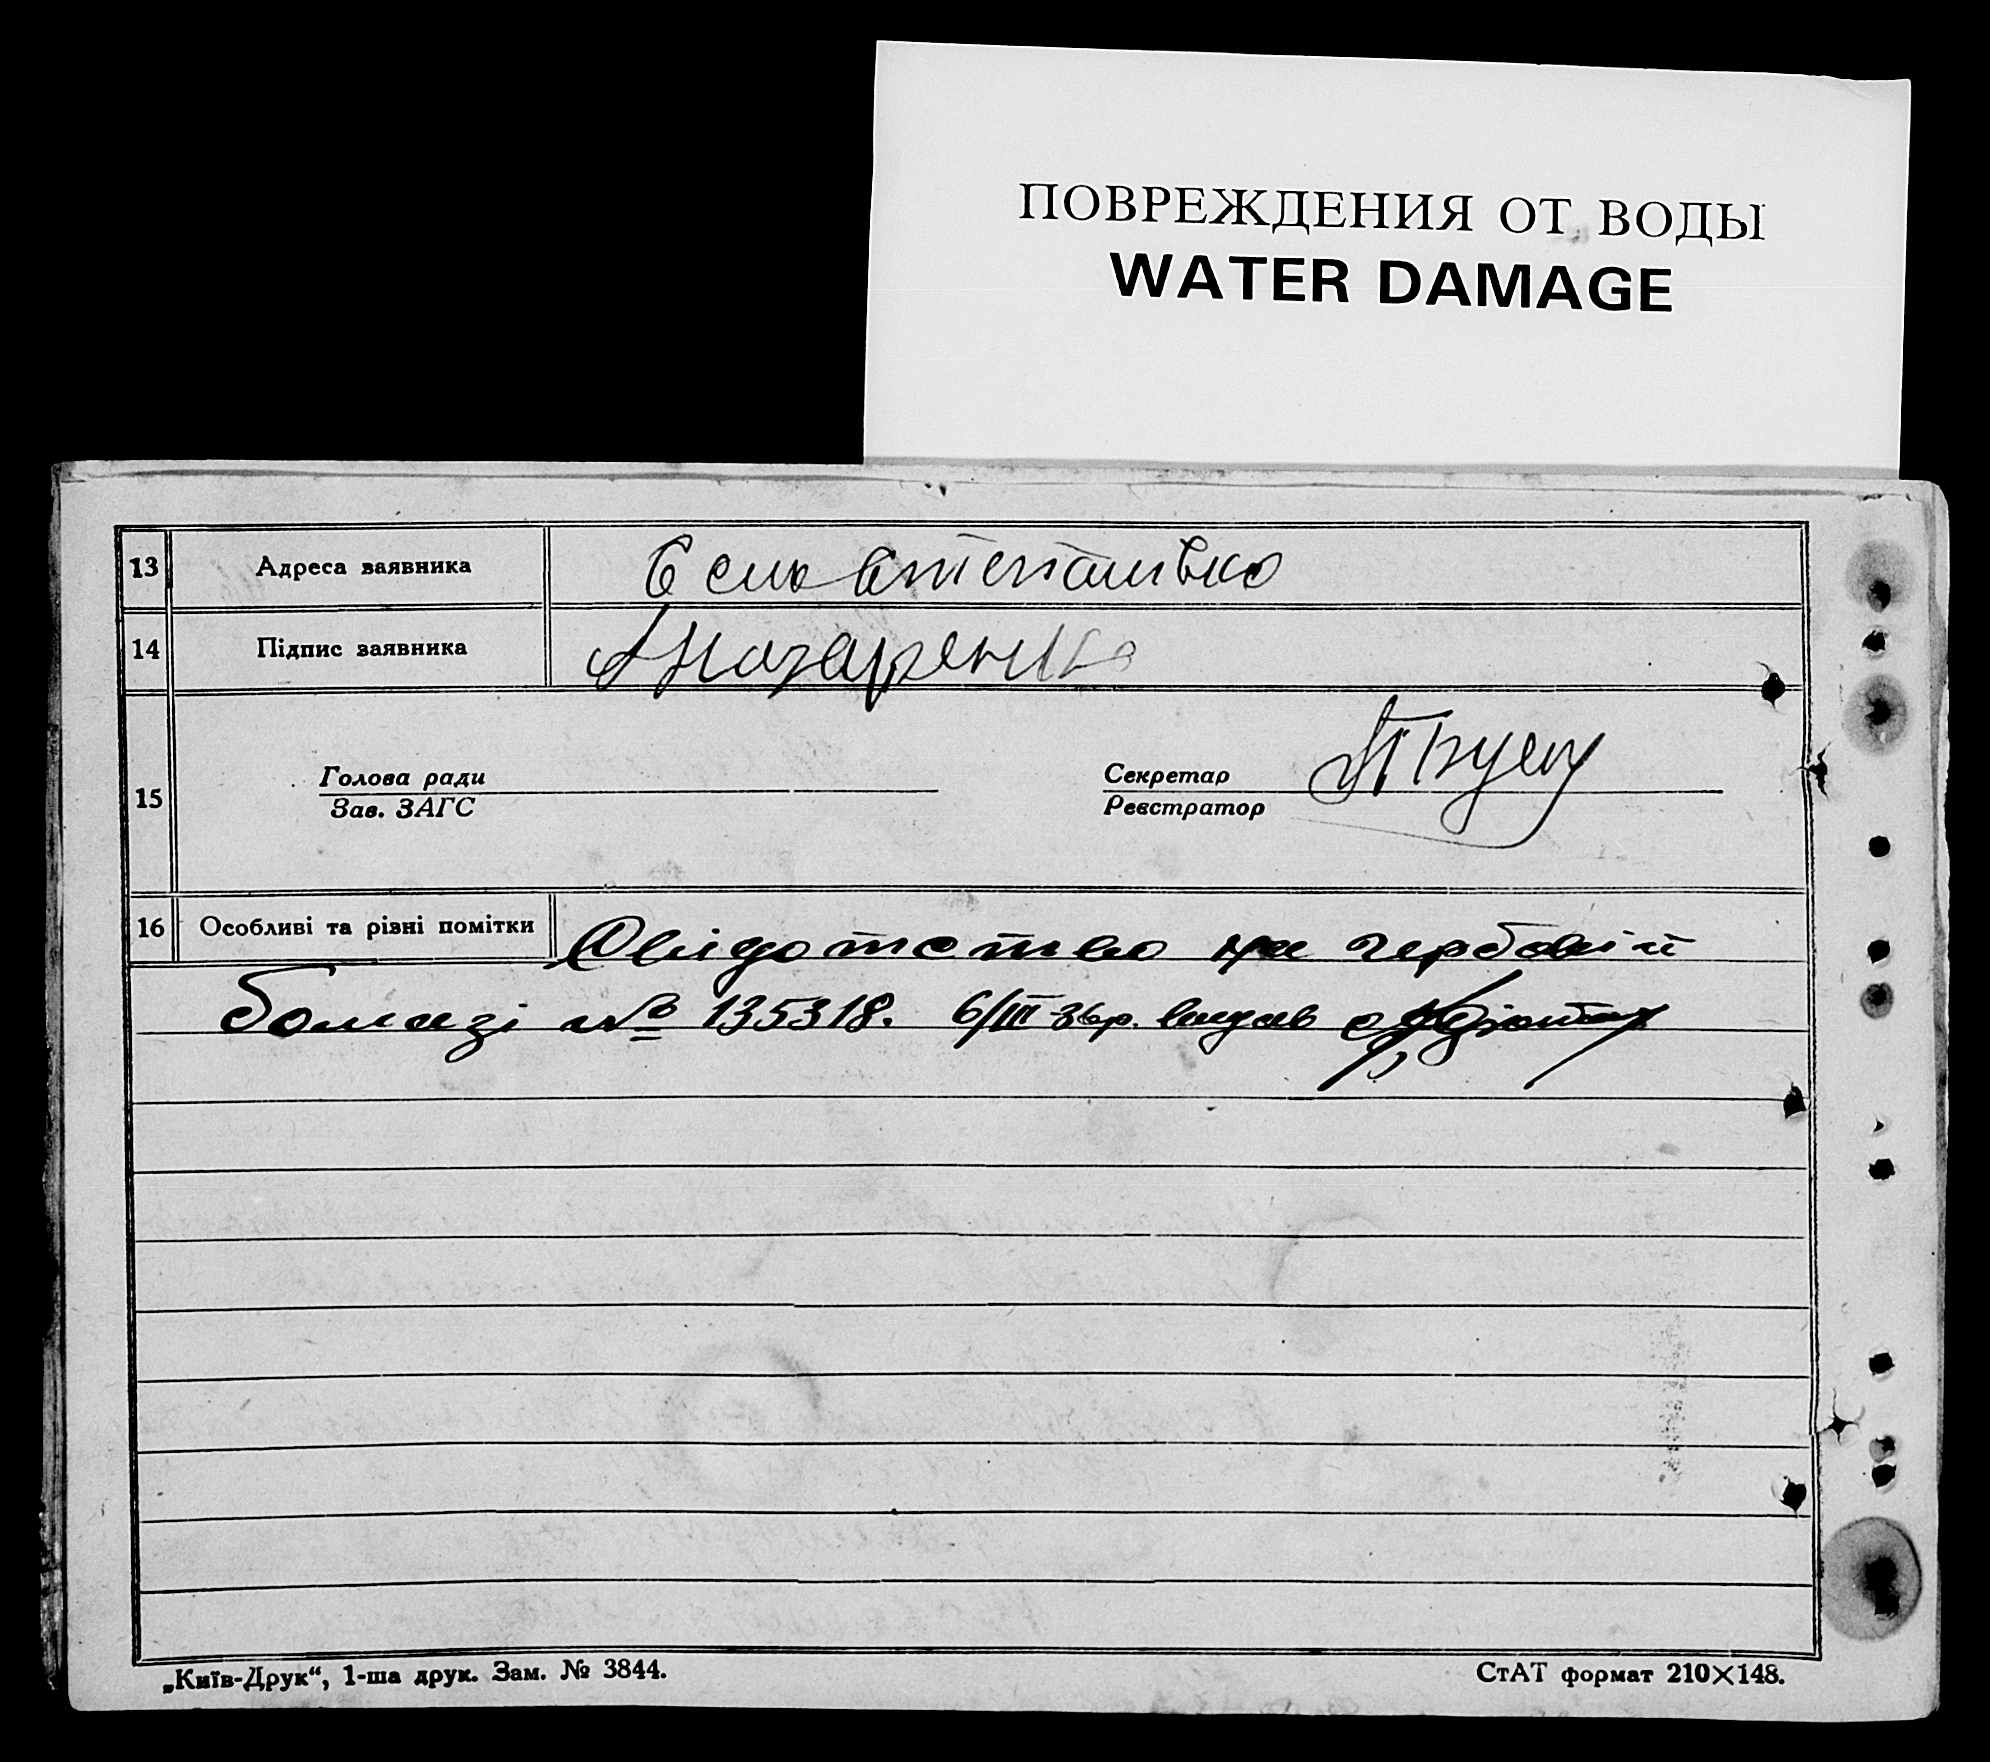 ПОВРЕЖДЕНИЯ ОТ ВОДЫ
WATER DAMAGE
13 Адреса заявника
14 Підпис заявника Назаренко
15 Голова ради Секретар
Зав. ЗАГС Реєстратор
16 Особливі та різні помітки Свідотство на гербовій
бомазі № 135318. 6/III 36р. видав
„Київ-Друк“, 1-ша друк. Зам. № 3844. СтАТ формат 210×148.